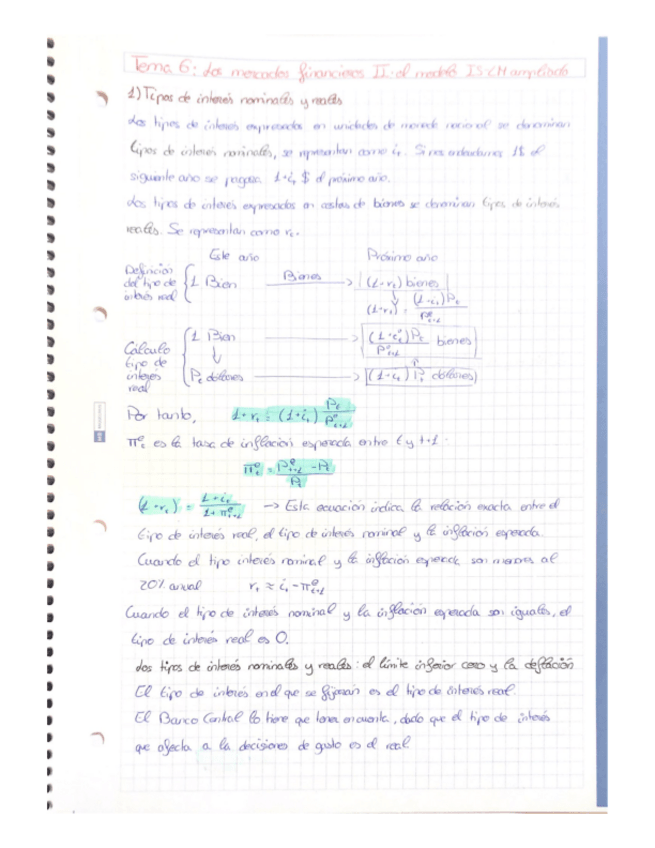 Tema 6: Los mercados financieros II: el modelo IS-LM ampliado
1) Tipos de interés nominales y reales
Los tipos de interés expresados en unidades de moneda nacional se denominan
tipos de interés nominales, se representan como iₜ. Si nos endeudamos 1$ el
siguiente año se pagará 1+iₜ $ el próximo año.
Los tipos de interés expresados en cestas de bienes se denominan tipos de interés
reales. Se representan como rₜ.
Este año Próximo año
Definición del tipo de interés real { 1 Bien Bienes → (1+rₜ) bienes
(1+rₜ) = (1+iₜ)Pₜ / Pᵉₜ₊₁
Cálculo tipo de interés real { 1 Bien → (1+iₜ)Pₜ / Pᵉₜ₊₁ bienes
↓
Pₜ dólares → (1+iₜ) Pₜ dólares
Por tanto, 1+rₜ = (1+iₜ) Pₜ / Pᵉₜ₊₁
πᵉₜ es la tasa de inflación esperada entre t y t+1.
πᵉₜ = Pᵉₜ₊₁ - Pₜ / Pₜ
(1+rₜ) = 1+iₜ / 1+πᵉₜ₊₁ → Esta ecuación indica la relación exacta entre el
tipo de interés real, el tipo de interés nominal y la inflación esperada.
Cuando el tipo interés nominal y la inflación esperada son menores al
20% anual rₜ ≈ iₜ - πᵉₜ₊₁
Cuando el tipo de interés nominal y la inflación esperada son iguales, el
tipo de interés real es 0.
Los tipos de interés nominales y reales: el límite inferior cero y la deflación
El tipo de interés en el que se fijarán es el tipo de interés real.
El Banco Central lo tiene que tener en cuenta, dado que el tipo de interés
que afecta a la decisiones de gasto es el real